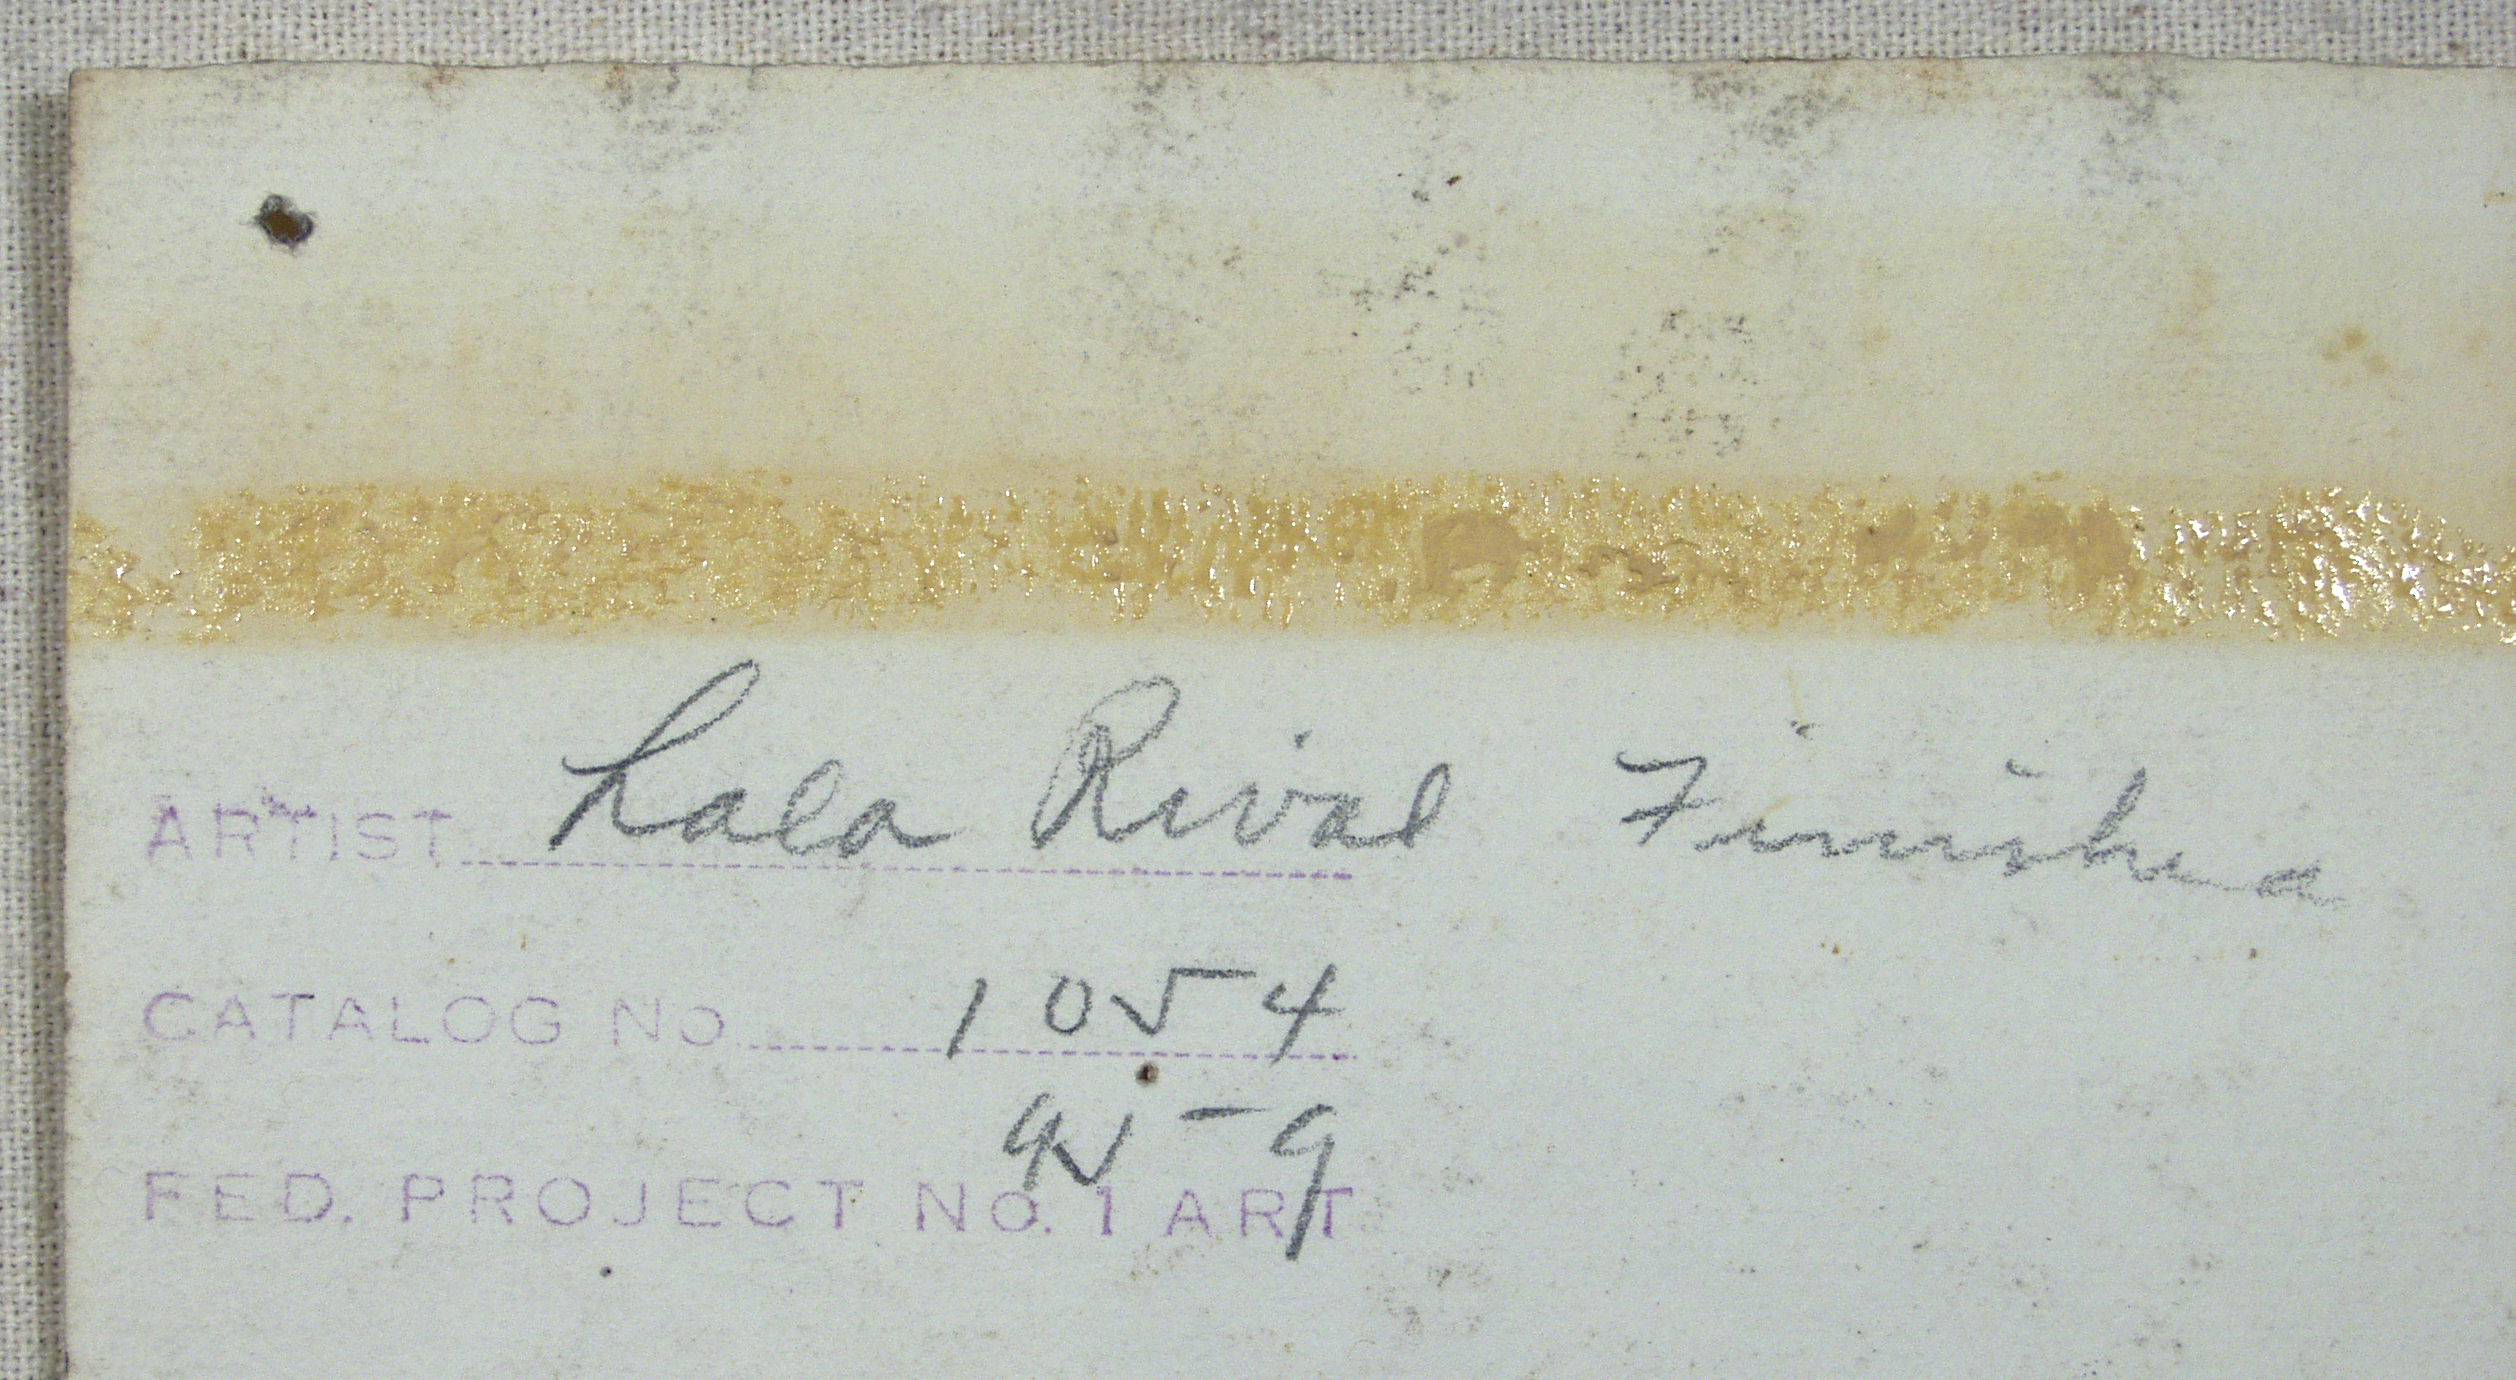 ARTIST Lala Rival Finished
CATALOG No 1054
459
FED. PROJECT No. 1 ART